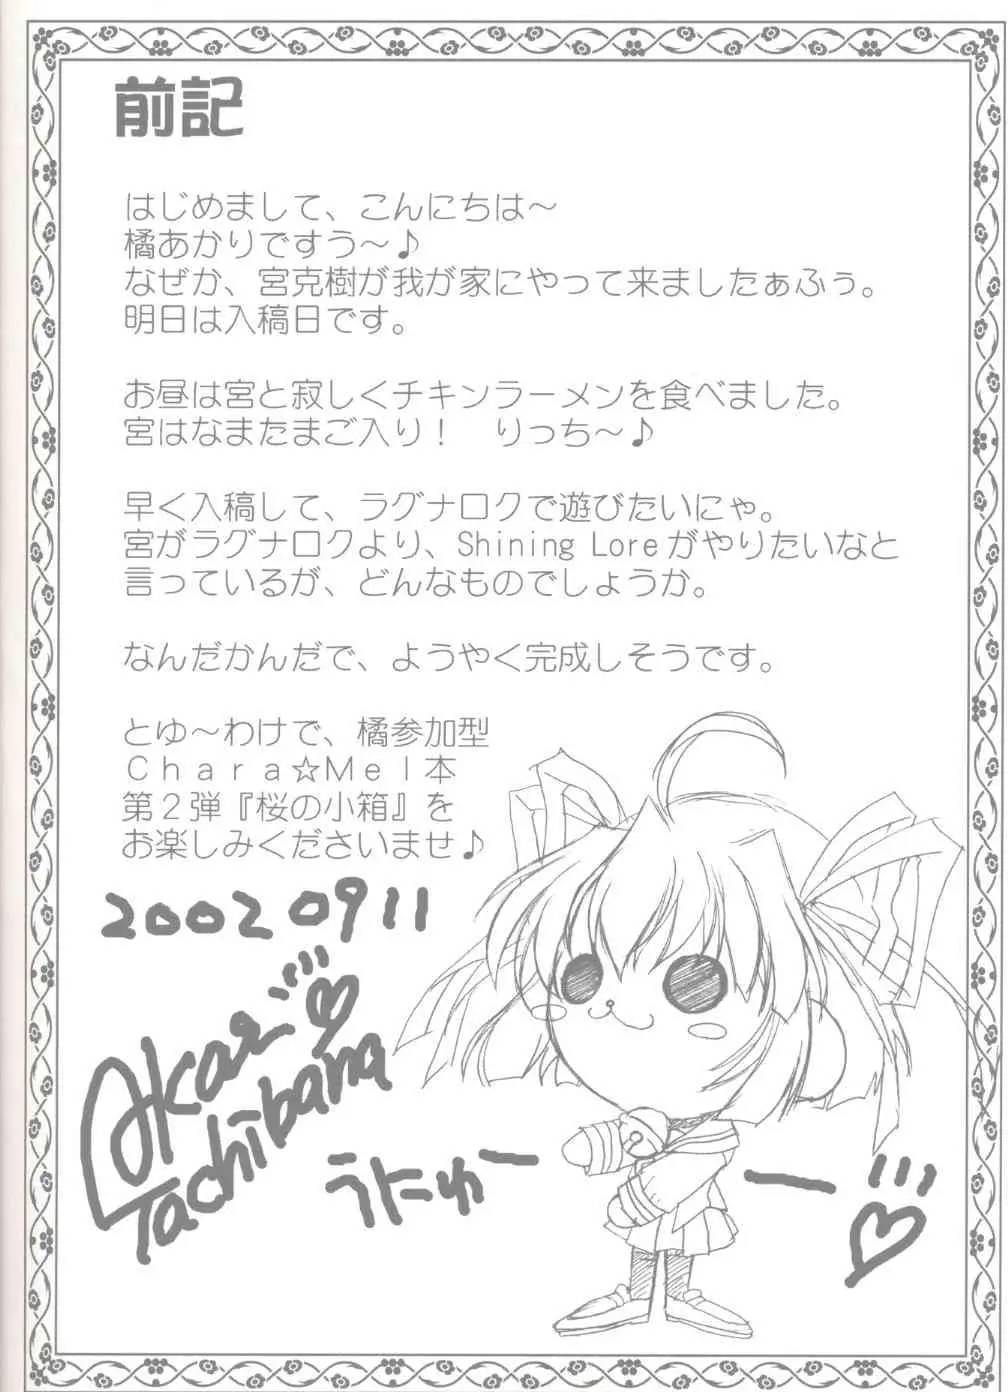 前記
はじめまして、こんにちは～
橘あかりですぅ～♪
なぜか、宮克樹が我が家にやって来ましたぁふぅ。
明日は入稿日です。
お昼は宮と寂しくチキンラーメンを食べました。
宮はなまたまご入り！　りっち～♪
早く入稿して、ラグナロクで遊びたいにゃ。
宮がラグナロクより、Shining Loreがやりたいなと
言っているが、どんなものでしょうか。
なんだかんだで、ようやく完成しそうです。
とゆ～わけで、橘参加型
Ｃｈａｒａ☆Ｍｅｌ本
第２弾『桜の小箱』を
お楽しみくださいませ♪
20020911
Tachibana
うにゅー ー